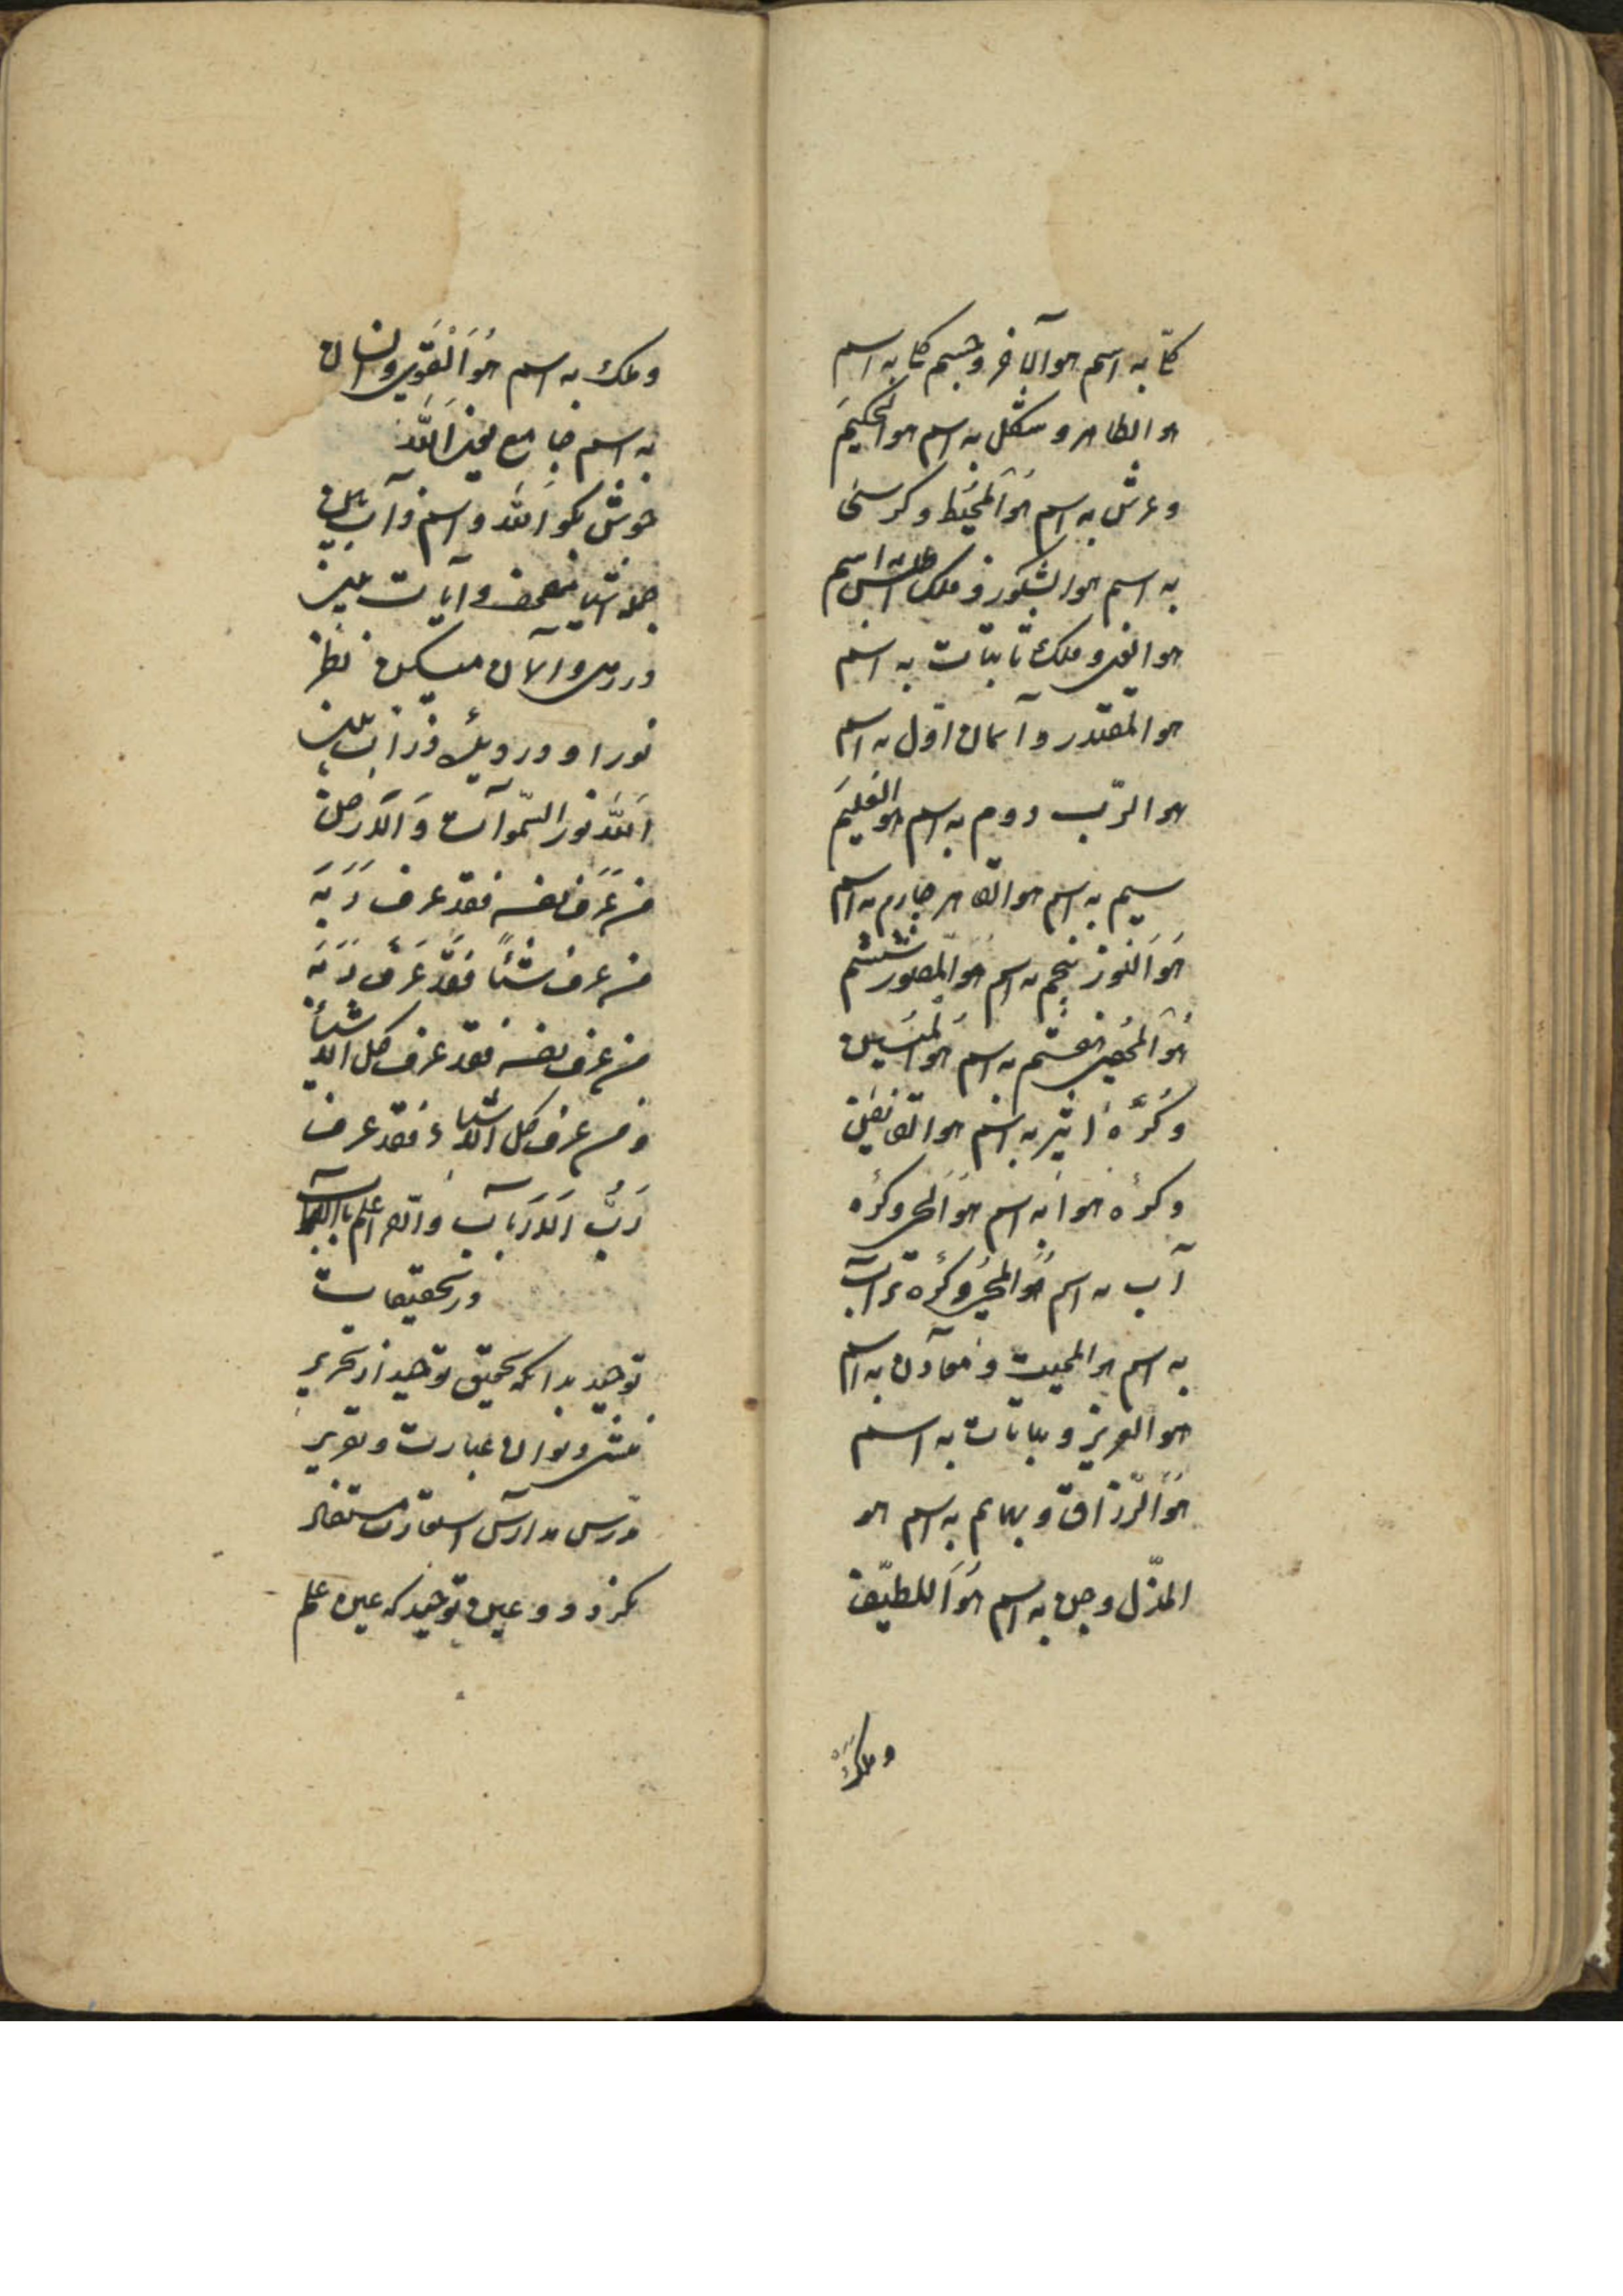 کتابه اسم هو الآخر و جسم کتابه اسم
هو الظاهر و شکل به اسم هو الحکیم
و عرش به اسم هُوَ المُحیط و کرسی
به اسم هو الشکور و فلک اطلس به اسم
هو الغنی و فلک ثابتات به اسم
هو المقتدر و آسمان اوّل به اسم
هو الرّب دوم به اسم هو العلیم
سیم به اسم هو القاهر چارم به اسم
هُوَ النّور پنجم به اسم هو المصور ششم
هُوَ المُحصی هفتم به اسم هو المبین
و کُرّهٔ اثیر به اسم هو القابض
و کرهٔ هوا به اسم هُوَ الحی و کره
آب به اسم هُوَ المُحیی و کرّه تراب
به اسم هو الممیت و معادن به اسم
هو العزیز و نباتات به اسم
هُوَ الرّزاق و بهایم به اسم هو
المذّل و جن به اسم هُوَ اللطیف
و ملک
و ملک به اسم هُوَ القَوی و انسان
به اسم جامع یعنی اَللّه
خوش بگو اَللّه و اسم ذاتش ببین
جمله اشیا مصحف و آیات ببین
در دو عالم میکن نظر
نور او در دیدهٔ ذرات ببین
اَللّه نور السّموات وَ الاَرض
من عَرَف نفسه فقد عرف رَبَّهَ
من عرف شیئاً فقد عَرَف رَبَّهَ
من عرف نفسه فقد عرف کل الاشیاء
و من عرف کل الاشیاء فقد عرف
رَبُّ الاَربَاب و الله اعلم بالصواب
در تحقیقات
توحید بدانکه تحقیق توحید از تحریر
منشی دیوان عبارت و تقریر
مدرس مدارس استعارت مستفاد
نگردد و عین توحید که عین علم